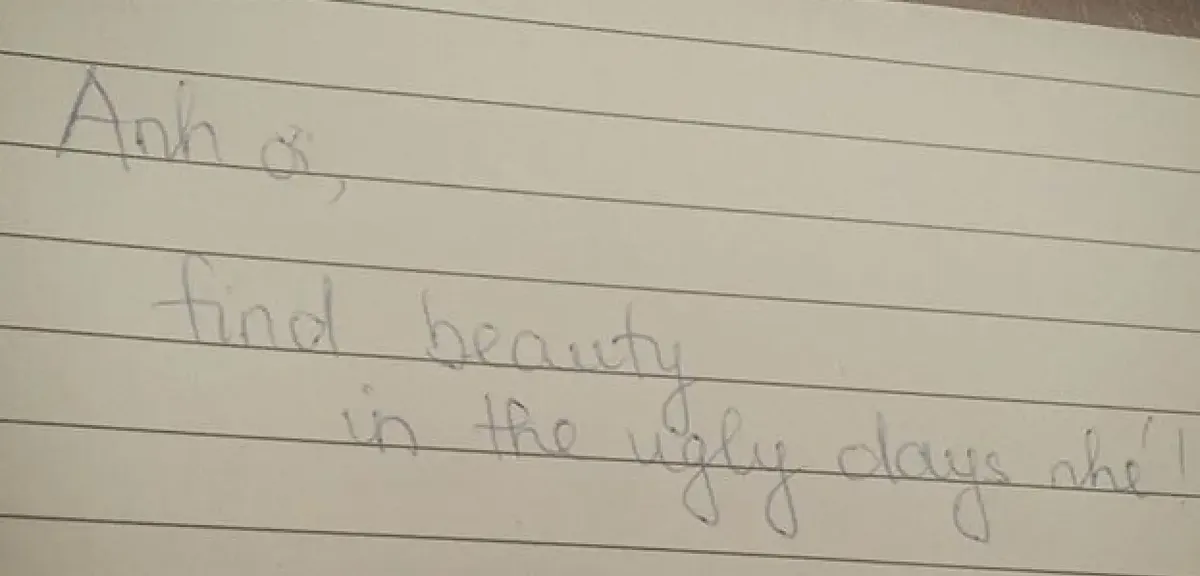 Anh ơi,
find beauty
in the ugly days nhé!